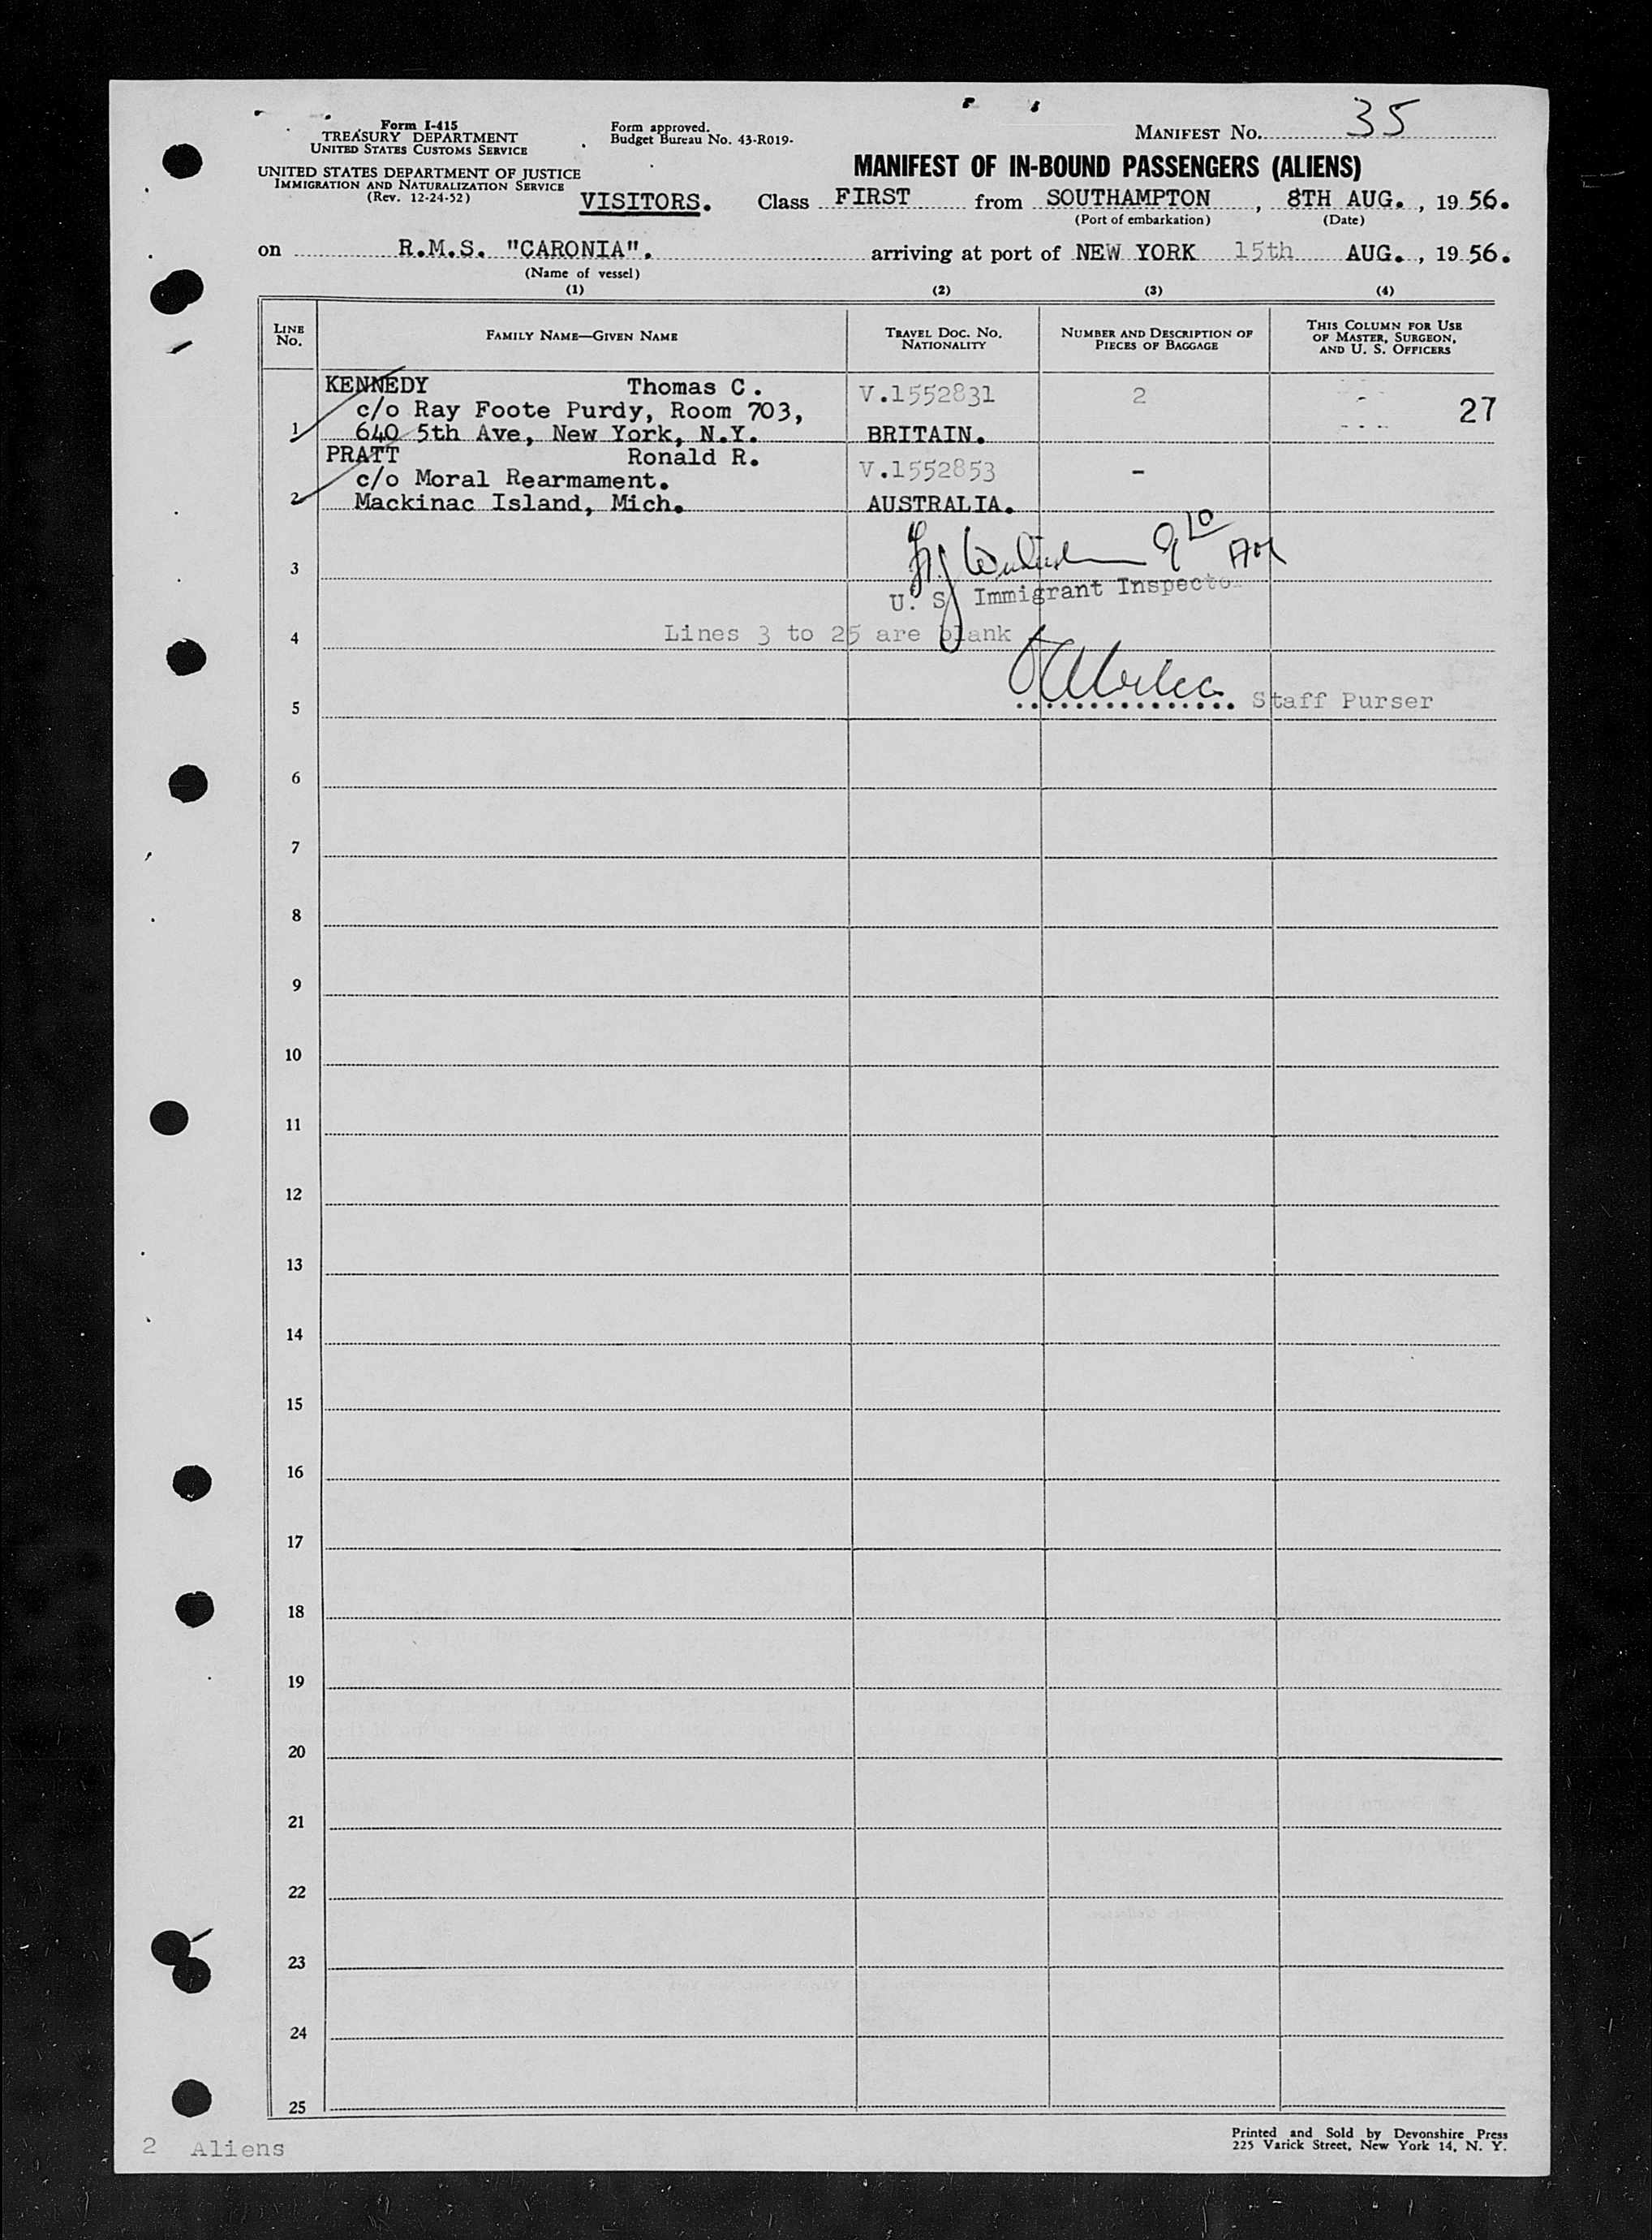 Form I-415
TREASURY DEPARTMENT
UNITED STATES CUSTOMS SERVICE
UNITED STATES DEPARTMENT OF JUSTICE
IMMIGRATION AND NATURALIZATION SERVICE
(Rev. 12-24-52)
Form approved.
Budget Bureau No. 43-R019-
MANIFEST NO. 35
MANIFEST OF IN-BOUND PASSENGERS (ALIENS)
VISITORS. Class FIRST from SOUTHAMPTON, 8TH AUG., 1956.
(Port of embarkation) (Date)
on R.M.S. "CARONIA". arriving at port of NEW YORK 15th AUG., 1956.
(Name of vessel)
(1) (2) (3) (4)
LINE NO. FAMILY NAME—GIVEN NAME TRAVEL DOC. NO. NATIONALITY NUMBER AND DESCRIPTION OF PIECES OF BAGGAGE THIS COLUMN FOR USE OF MASTER, SURGEON, AND U. S. OFFICERS
KENNEDY Thomas C. V.1552831 2 - -
c/o Ray Foote Purdy, Room 703, 27
1 640 5th Ave, New York, N.Y. BRITAIN. - - -
PRATT Ronald R. V.1552853 -
c/o Moral Rearmament.
2 Mackinac Island, Mich. AUSTRALIA.
3
U. S. Immigrant Inspector
4 Lines 3 to 25 are blank
5 Staff Purser
6
7
8
9
10
11
12
13
14
15
16
17
18
19
20
21
22
23
24
25
2 Aliens
Printed and Sold by Devonshire Press
225 Varick Street, New York 14, N. Y.